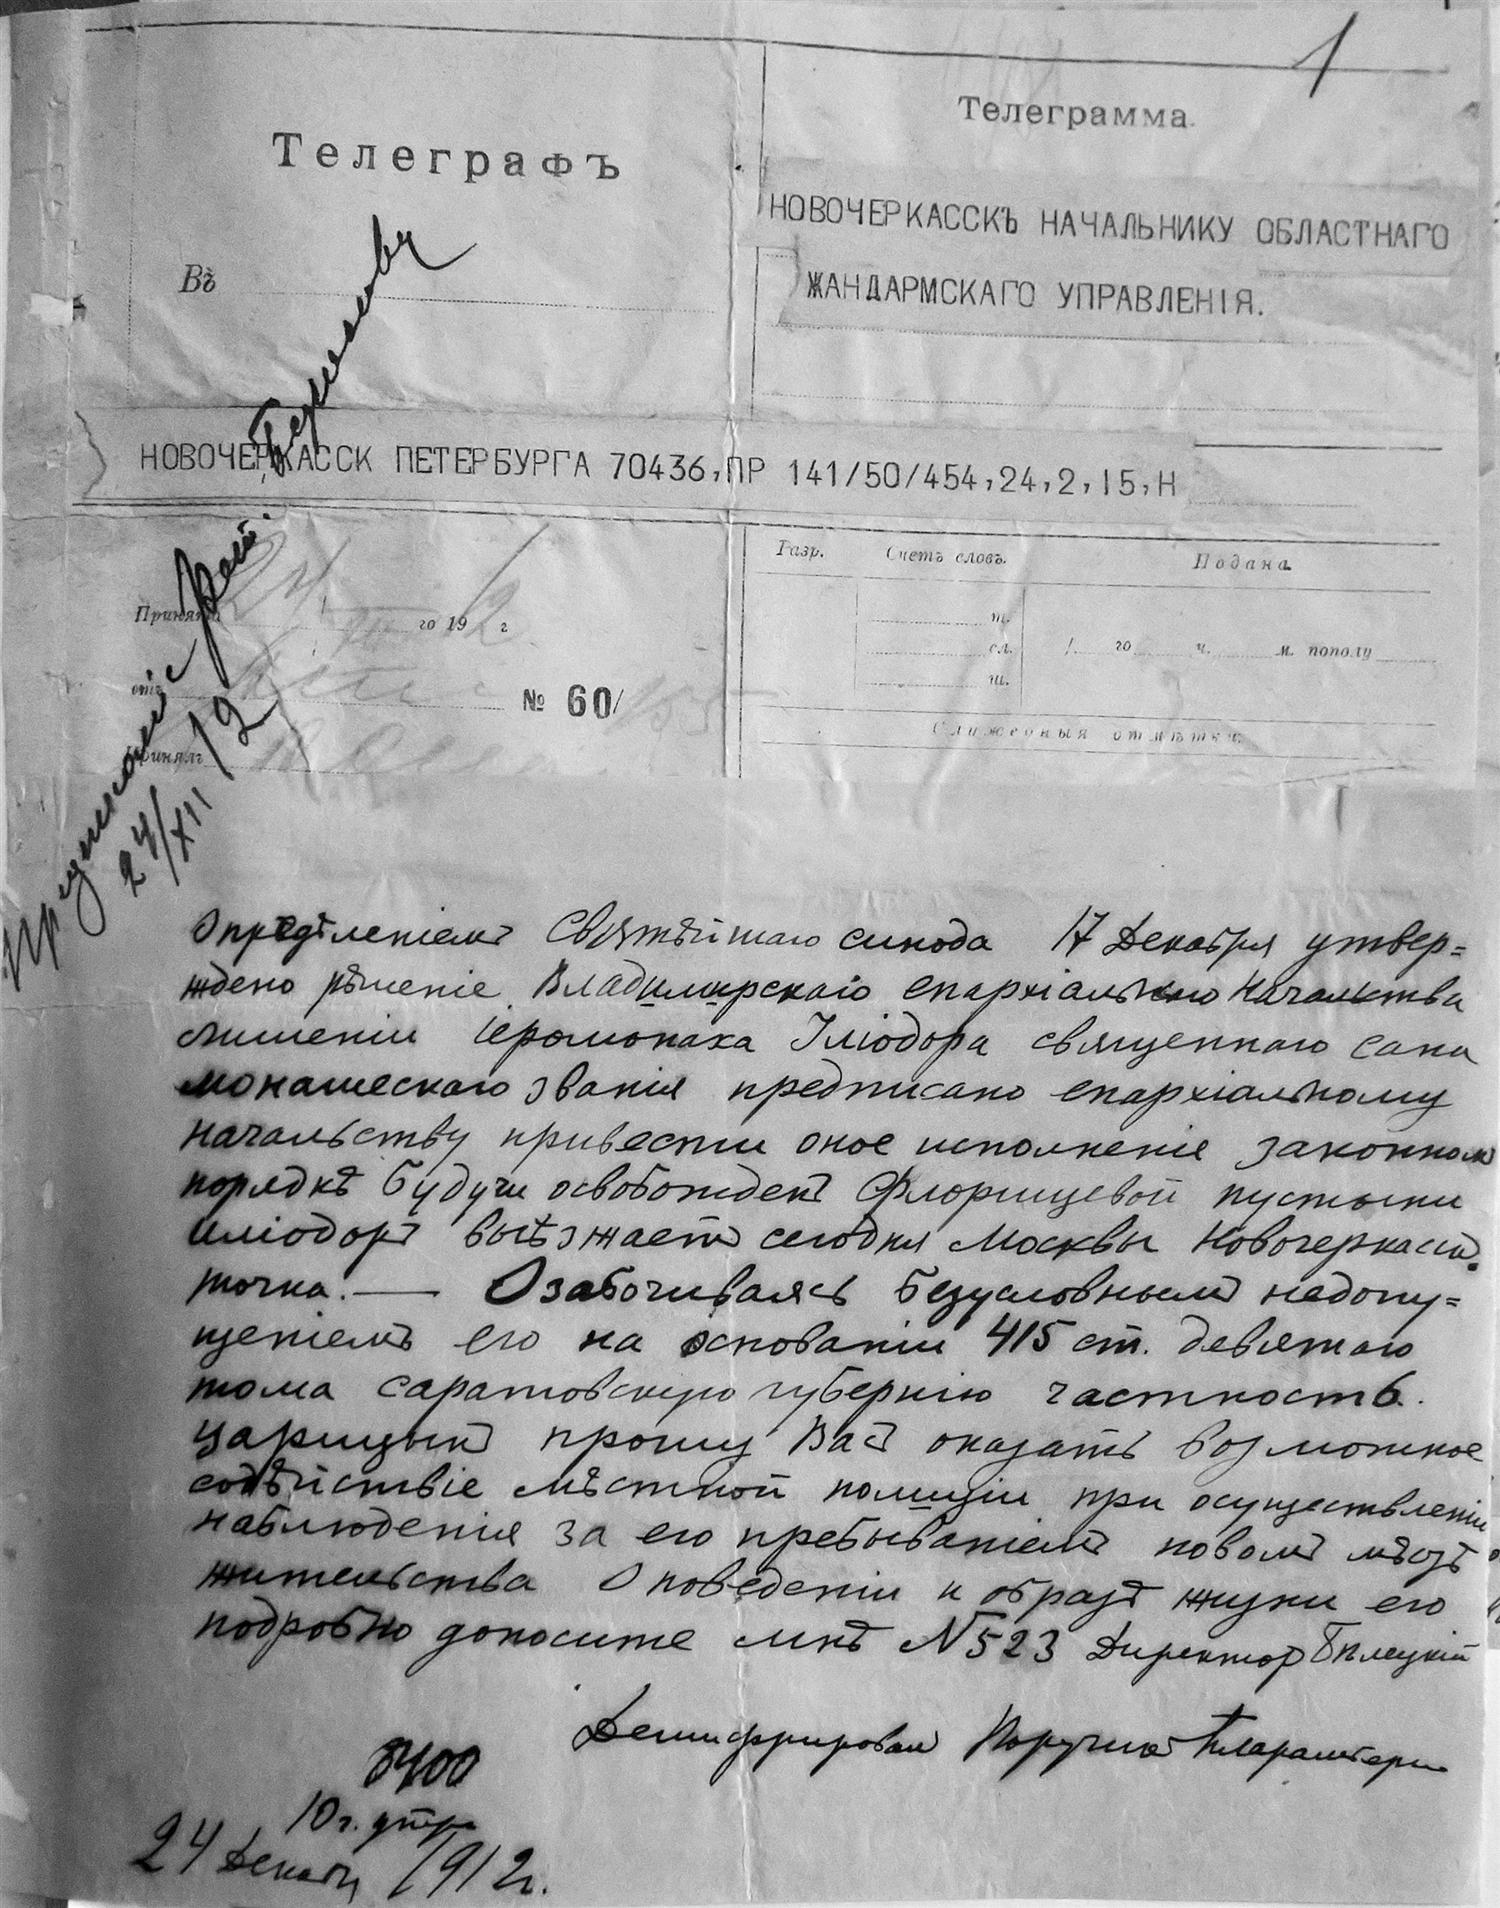 1
Телеграфъ
Телеграмма.
Въ
НОВОЧЕРКАССКЪ НАЧАЛЬНИКУ ОБЛАСТНАГО
ЖАНДАРМСКАГО УПРАВЛЕНІЯ.
НОВОЧЕРКАССК ПЕТЕРБУРГА 70436,ПР 141/50/454,24,2,15,Н
Принята 24 го 1912 г
отъ
№ 60/
Принялъ
Разр. Счетъ словъ. Подана
т.
сл. го ч. м. пополу
ш.
Служебныя отмѣтки.
24/XII 12
Опредѣленіемъ Святѣйшаго синода 17 Декабря утвер=
ждено рѣшеніе Владимирскаго епархіальнаго Начальства
лишеніи іеромонаха Иліодора священнаго сана
монашескаго званія предписано епархіальному
начальству привести оное исполненіе законномъ
порядкѣ Будучи освобожденъ Флорищевой пустыни
Иліодоръ выѣзжаетъ сегодня Москвы Новочеркасскъ.
точка. — Озабочиваясь безусловнымъ недопу=
щеніемъ его на основаніи 415 ст. девятаго
тома саратовскую губернію частность.
Царицынъ прошу Васъ оказать возможное
содѣйствіе мѣстной полиціи при осуществленіи
наблюденія за его пребываніемъ новомъ мѣстѣ
жительства О поведеніи и образѣ жизни его
подробно доносите мнѣ N 523 Директоръ Бѣлецкій
Дешифрировалъ Поручикъ
10 ч. утра
24 Декабр 1912 г.